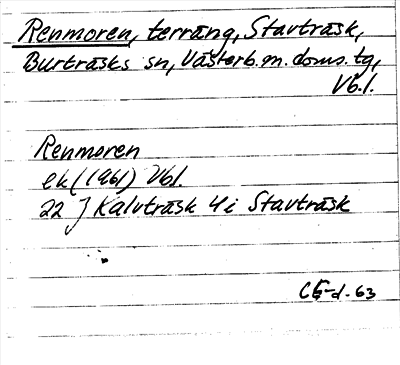 Renmoren, terräng, Stavträsk,
Burträsks sn, Västerb. m. doms. tg,
Vb. l.
Renmoren
ek (1961) Vbl.
22 J Kalvträsk 4i Stavträsk
-d. 63